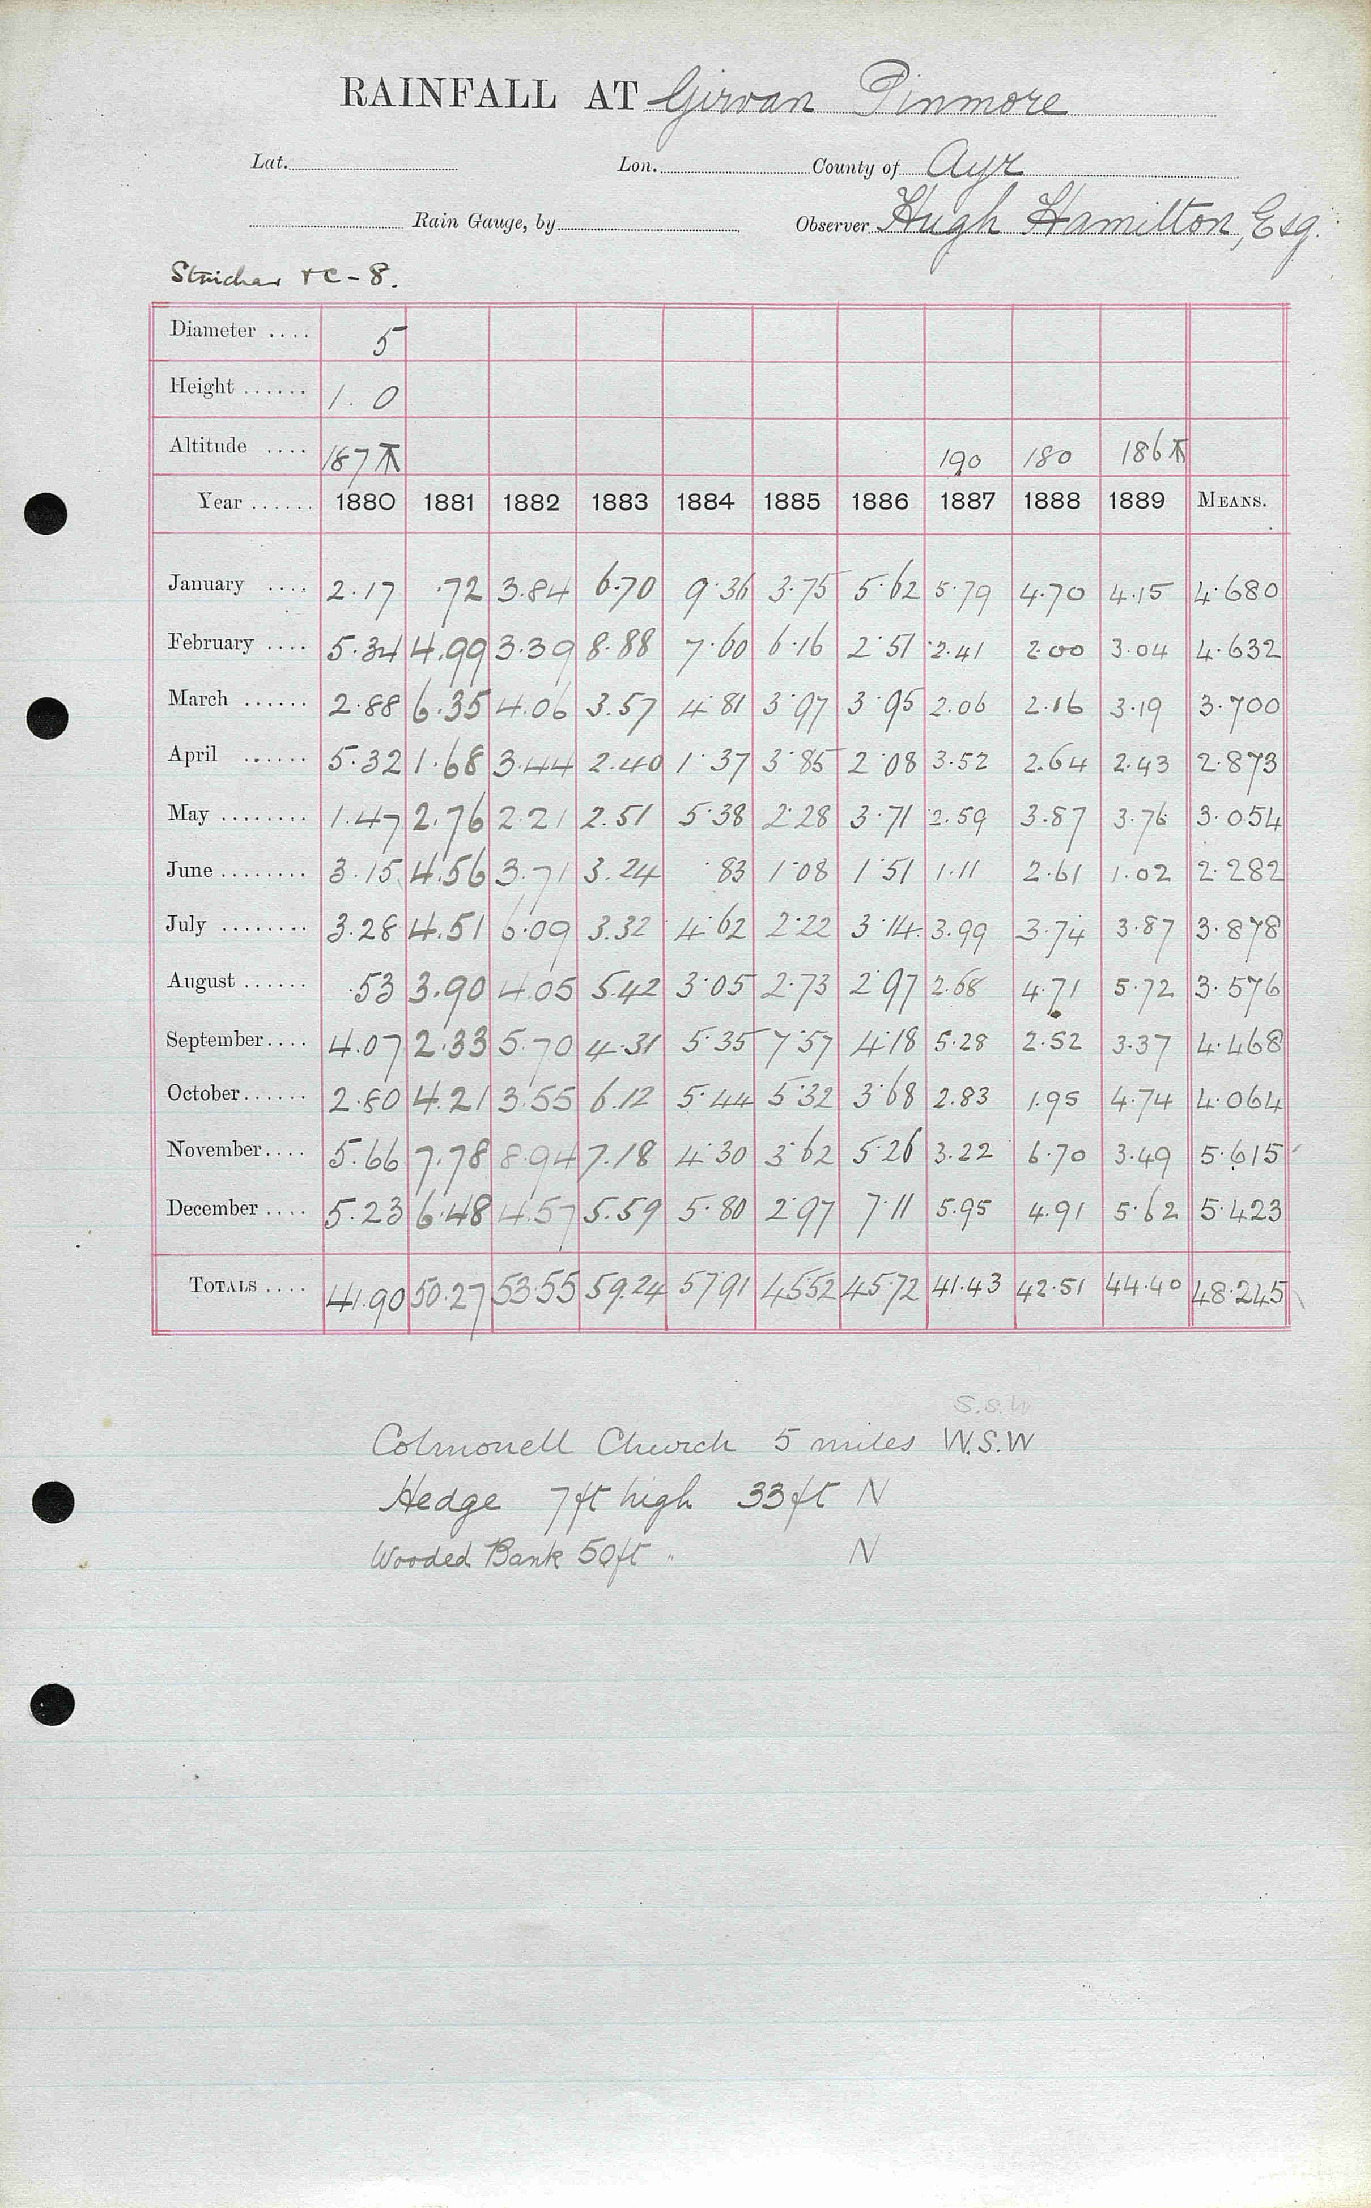 RAINFALL AT Girvan Pinmore
Lat. Lon. County of Ayr
Rain Gauge, by Observer Hugh Hamilton, Esq.
+ C - 8.
Diameter .... 5
Height ...... 1. 0
Altitude .... 187 190 180 186
Year ...... 1880 1881 1882 1883 1884 1885 1886 1887 1888 1889 MEANS.
January .... 2.17 .72 3.84 6.70 9.36 3.75 5.62 5.79 4.70 4.15 4.680
February .... 5.34 4.99 3.39 8.88 7.60 6.16 2.51 2.41 2.00 3.04 4.632
March ...... 2.88 6.35 4.06 3.57 4.81 3.97 3.95 2.06 2.16 3.19 3.700
April ...... 5.32 1.68 3.44 2.40 1.37 3.85 2.08 3.52 2.64 2.43 2.873
May ........ 1.47 2.76 2.21 2.51 5.38 2.28 3.71 2.59 3.87 3.76 3.054
June ........ 3.15 4.56 3.71 3.24 .83 1.08 1.51 1.11 2.61 1.02 2.282
July ........ 3.28 4.51 6.09 3.32 4.62 2.22 3.14 3.99 3.74 3.87 3.878
August ...... .53 3.90 4.05 5.42 3.05 2.73 2.97 2.68 4.71 5.72 3.576
September.... 4.07 2.33 5.70 4.31 5.35 7.57 4.18 5.28 2.52 3.37 4.468
October...... 2.80 4.21 3.55 6.12 5.44 5.32 3.68 2.83 1.95 4.74 4.064
November.... 5.66 7.78 8.94 7.18 4.30 3.62 5.26 3.22 6.70 3.49 5.615
December .... 5.23 6.48 4.57 5.59 5.80 2.97 7.11 5.95 4.91 5.62 5.423
TOTALS .... 41.90 50.27 53.55 59.24 57.91 45.52 45.72 41.43 42.51 44.40 48.245
S.S.W
Colmonell Church 5 miles W.S.W
Hedge 7ft high 33ft N
Wooded Bank 50ft " N